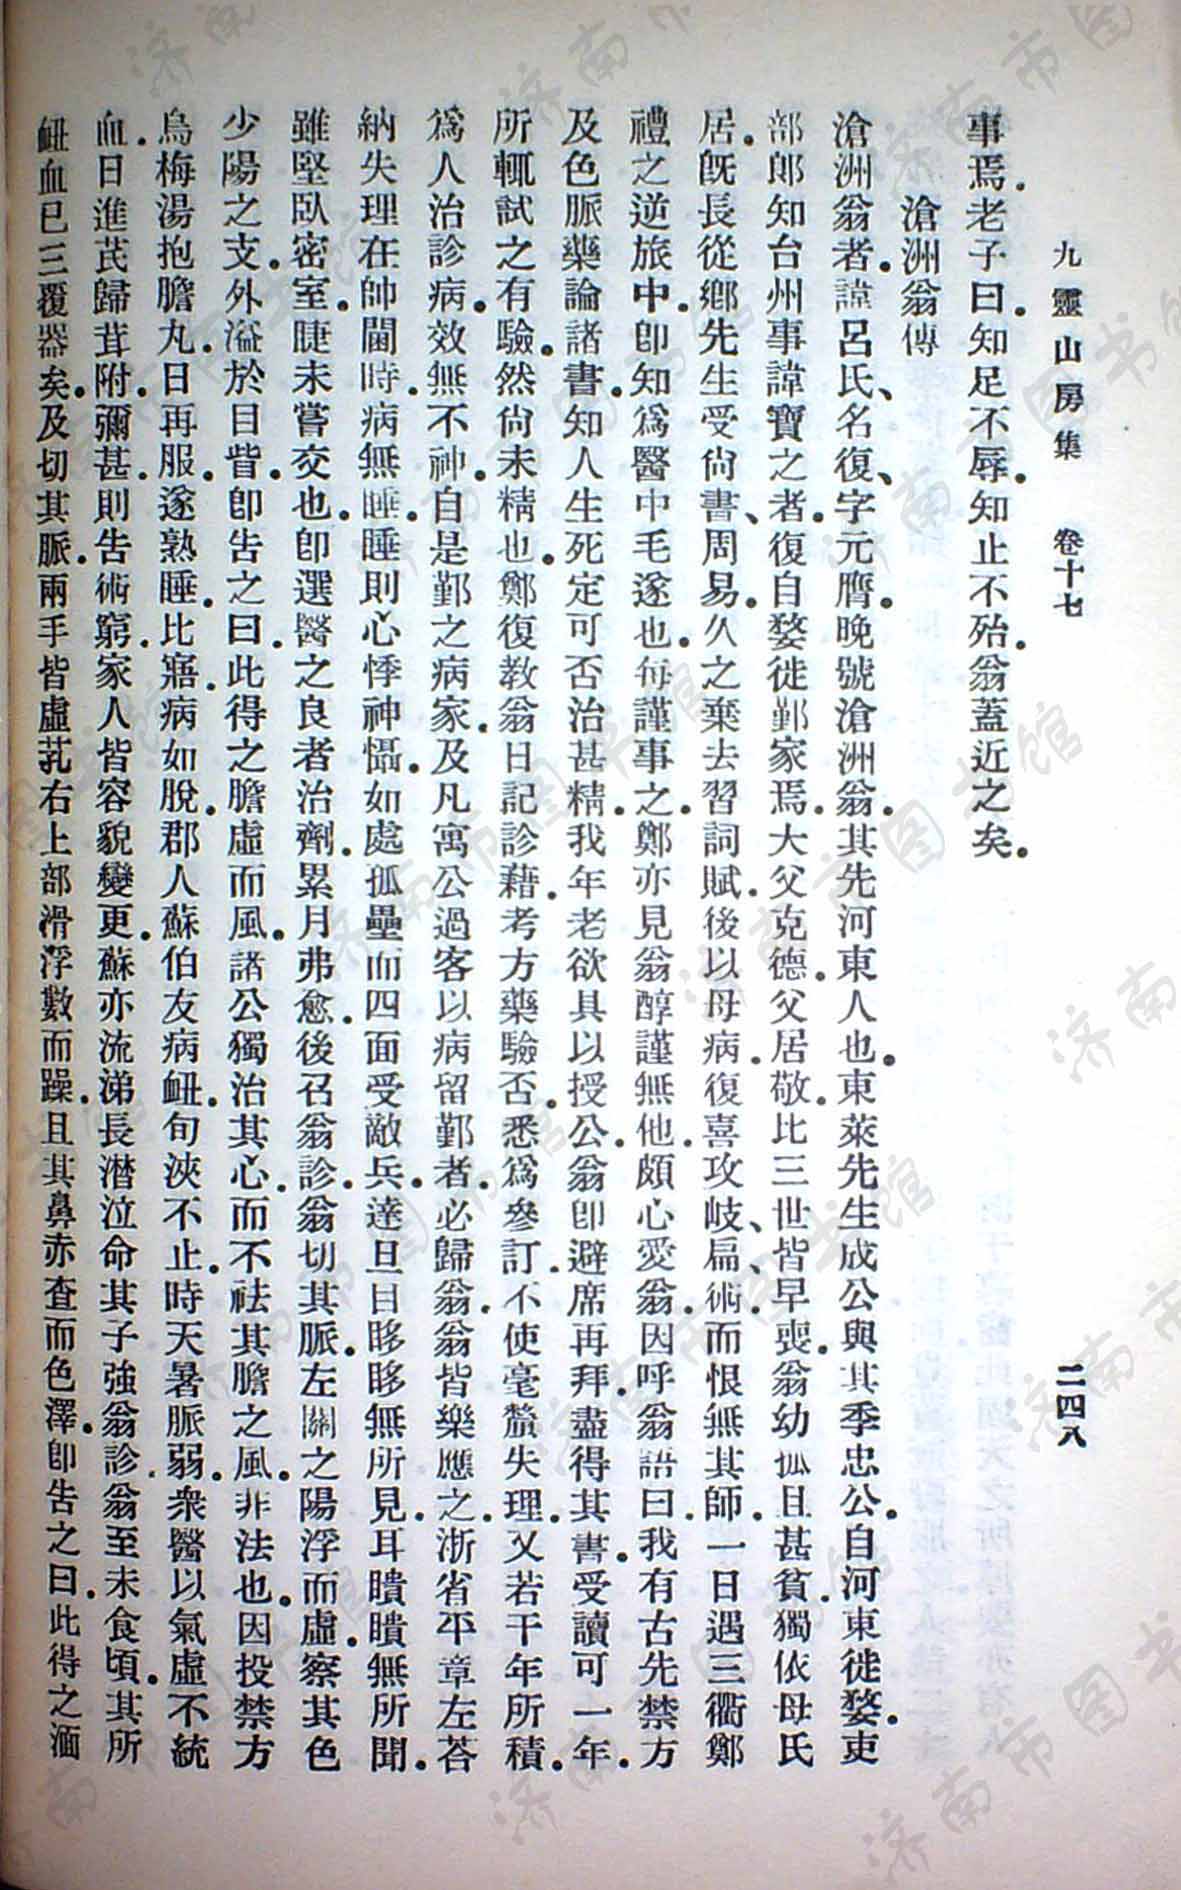 九靈山房集 卷十七 二四八
事焉。老子曰。知足不辱。知止不殆。翁蓋近之矣。
滄洲翁傳
滄洲翁者。諱呂氏、名復、字元膺。晚號滄洲翁。其先河東人也。東萊先生成公與其季忠公。自河東徙婺。吏
部郎知台州事諱寶之者。復自婺徙鄞家焉。大父克德。父居敬。比三世皆早喪。翁幼孤。且甚貧。獨依母氏
居。旣長從鄉先生受尙書、周易。久之棄去。習詞賦。後以母病。復喜攻岐、扁、術。而恨無其師。一日遇三衢鄭
禮之逆旅中。卽知爲醫中毛遂也。每謹事之。鄭亦見翁醇謹無他。頗心愛翁。因呼翁語曰。我有古先禁方
及色脈藥論諸書。知人生死。定可否治甚精。我年老。欲具以授公。翁卽避席再拜。盡得其書。受讀可一年。
所輒試之有驗。然尙未精也。鄭復教翁日記診藉。考方藥驗否。悉爲參訂。不使毫釐失理。又若干年所積。
爲人治診病。效無不神。自是鄞之病家。及凡寓公過客以病留鄞者。必歸翁。翁皆樂應之。浙省平章左荅
納失理在帥閫時。病無睡。睡則心悸神懾。如處孤壘而四面受敵兵。達旦目眵眵無所見。耳聵聵無所聞。
雖堅臥密室。睫未嘗交也。卽選醫之良者治劑。累月弗愈。後召翁診。翁切其脈。左關之陽浮而虛。察其色
少陽之支。外溢於目眥。卽告之曰。此得之膽虛而風。諸公獨治其心。而不祛其膽之風。非法也。因投禁方
烏梅湯抱膽丸。日再服。遂熟睡。比寤。病如脫。郡人蘇伯友病衄。旬浹不止。時天暑脈弱。衆醫以氣虛不統
血。日進芪歸茸附。彌甚。則告術窮。家人皆容貌變更。蘇亦流涕長潸泣命其子強翁診。翁至未食頃。其所
衄血已三覆器矣。及切其脈。兩手皆虛芤右上部滑浮數而躁。且其鼻赤查而色澤。卽告之曰。此得之湎